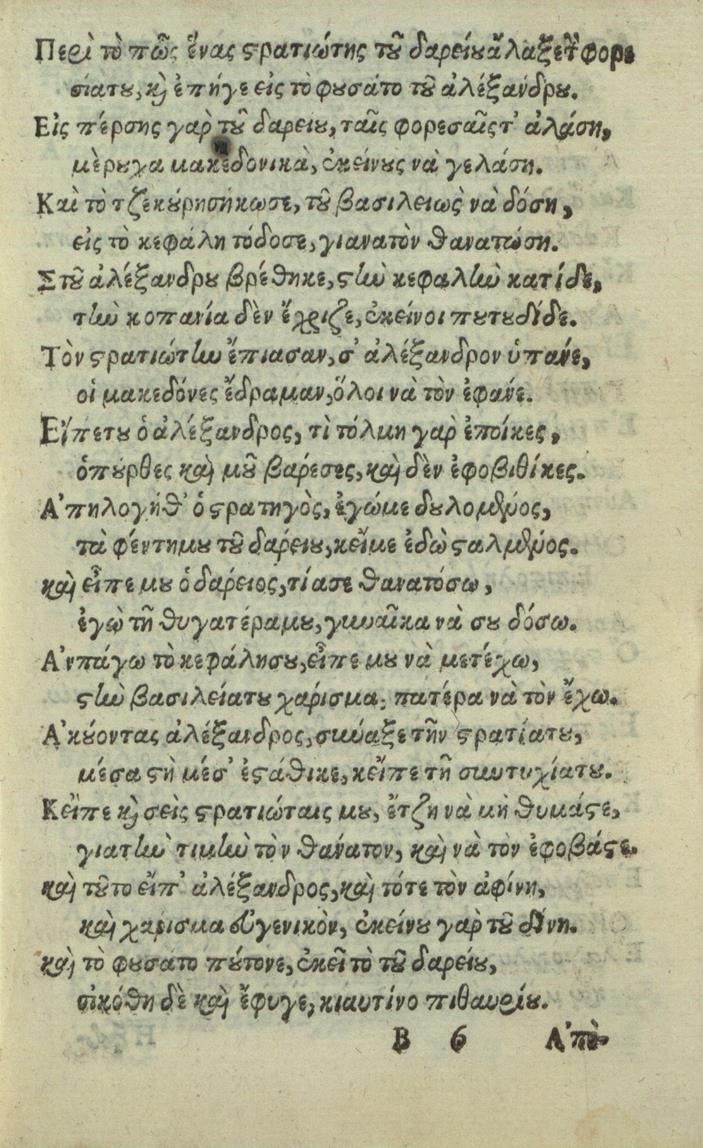 Περὶ τὸ πῶς ἕνας στρατιώτης τοῦ δαρείου ἄλαξε τ̀ φορε
σίατου, καὶ ἐπήγε εἰς τὸ φουσάτο τοῦ ἀλέξανδρου.
Εἰς πέρσης γαρ τοῦ δαρείου, ταῖς φορεσαῖς τ' ἀλάση,
μὲ ρουχα μακεδονικὰ, ἐκείνους νὰ γελάση.
Καὶ τὸ τζεκούρη σήκωσε, τοῦ βασιλειως νὰ δόση,
εἰς τὸ κεφάλη τόδοσε, γιανατὸν θανατώση.
Στοῦ ἀλέξανδρου βρέθηκε, στὴν κεφαλὴν κατίδε,
τὴν κοπανία δὲν ἔχριζε, ἐκείνοι που του δίδε.
Τὸν στρατιώτην ἔπιασαν, σ' ἀλέξανδρον ὑπανέ,
οἱ μακεδόνες ἔδραμαν, ὅλοι νὰ τὸν ἐφανέ.
Εἴπε του ὁ ἀλέξανδρος, τὶ τόλμη γαρ ἐποίκες,
ὁπούρθες καὶ μοῦ βαρέσες, καὶ δὲν ἐφοβιθίκες.
Α'πηλογήθ' ὁ στρατηγὸς, ἐγώμε δουλομένος,
τὰ φέντημου τοῦ δαρείου, κεῖμε ἐδὼ σταλμένος.
καὶ εἶπε μου ὁ δαρείος, τί ασε θανατόσω,
ἐγὼ τῆ θυγατέραμου, γυναῖκα νὰ σου δόσω.
Α'νπάγω τὸ κεφάλησου, εἶπε μου νὰ μετέχω,
στὴν βασιλείατου χάρισμα, πατέρα νὰ τὸν ἔχω.
Α'κούοντας ἀλέξανδρος, σύναξε τῆν στρατίατου,
μέσα στὴ μέσ' ἐστάθικε, κεῖπε τῆ συντυχίατου.
Κεῖπε καὶ σεὶς στρατιώταις μου, ἔτζη νὰ μὴ θυμάστε,
γιατὴν τιμὴν τὸν θάνατον, καὶ νὰ τὸν ἐφοβάστε.
καὶ τοῦτο εἶπ' ἀλέξανδρος, καὶ τότε τὸν ἀφίνη,
καὶ χάρισμα εὐγενικὸν, ἐκείνου γαρ τοῦ δίνη.
καὶ τὸ φουσάτο πούτονε, ἐκεῖ τὸ τοῦ δαρείου,
σικόθη δὲ καὶ ἔφυγε, κι αυτίνο πιθαυρίου.
Β 6 Α'πὸ